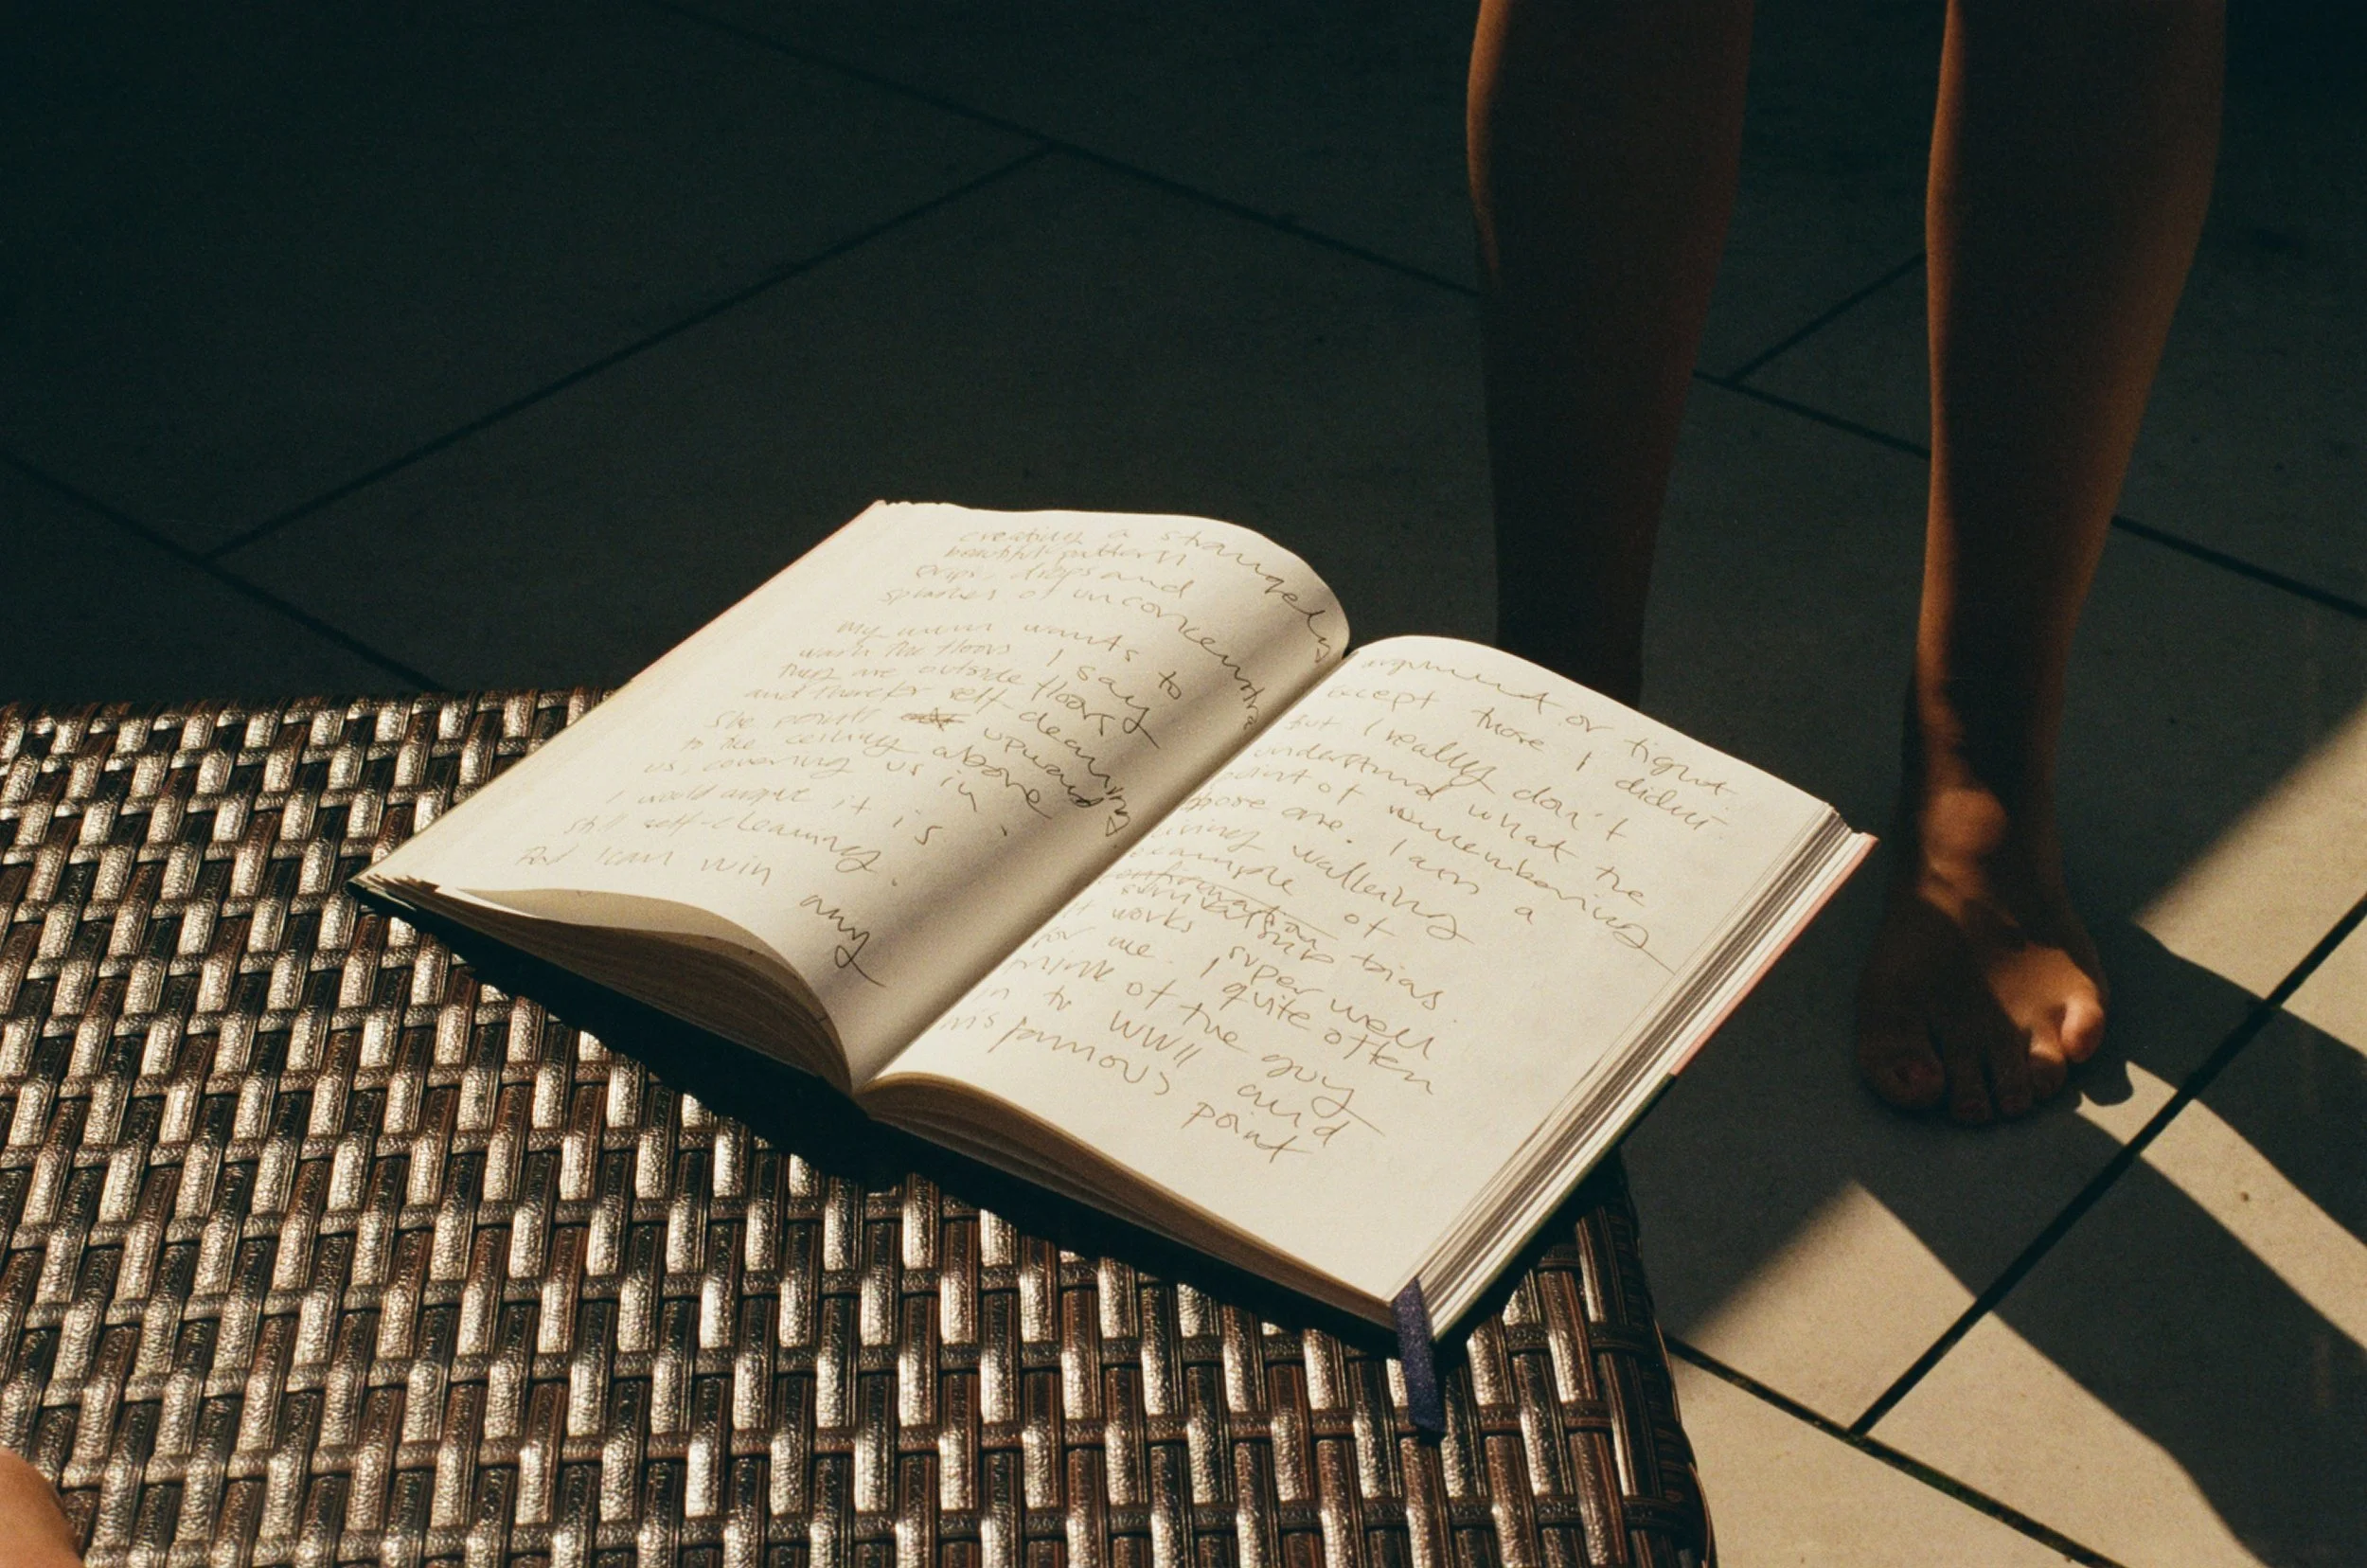 creating a strangely
beautiful pattern
drips, drops and
splashes of unconcentra
my mum wants to
wash the floors I say
they are outside floors
and therefor self cleaning
She points upwards
to the ceiling above
us, covering us in.
I would argue it is
still self-cleaning.
And I can win any
argument or fight
accept those I didnt.
but I really don't
understand what the
point of remembering
those are. I am a
living walking
example of
confirmation
survivalship bias.
It works super well
for me. I quite often
think of the guy
in the WWII and
his famous point